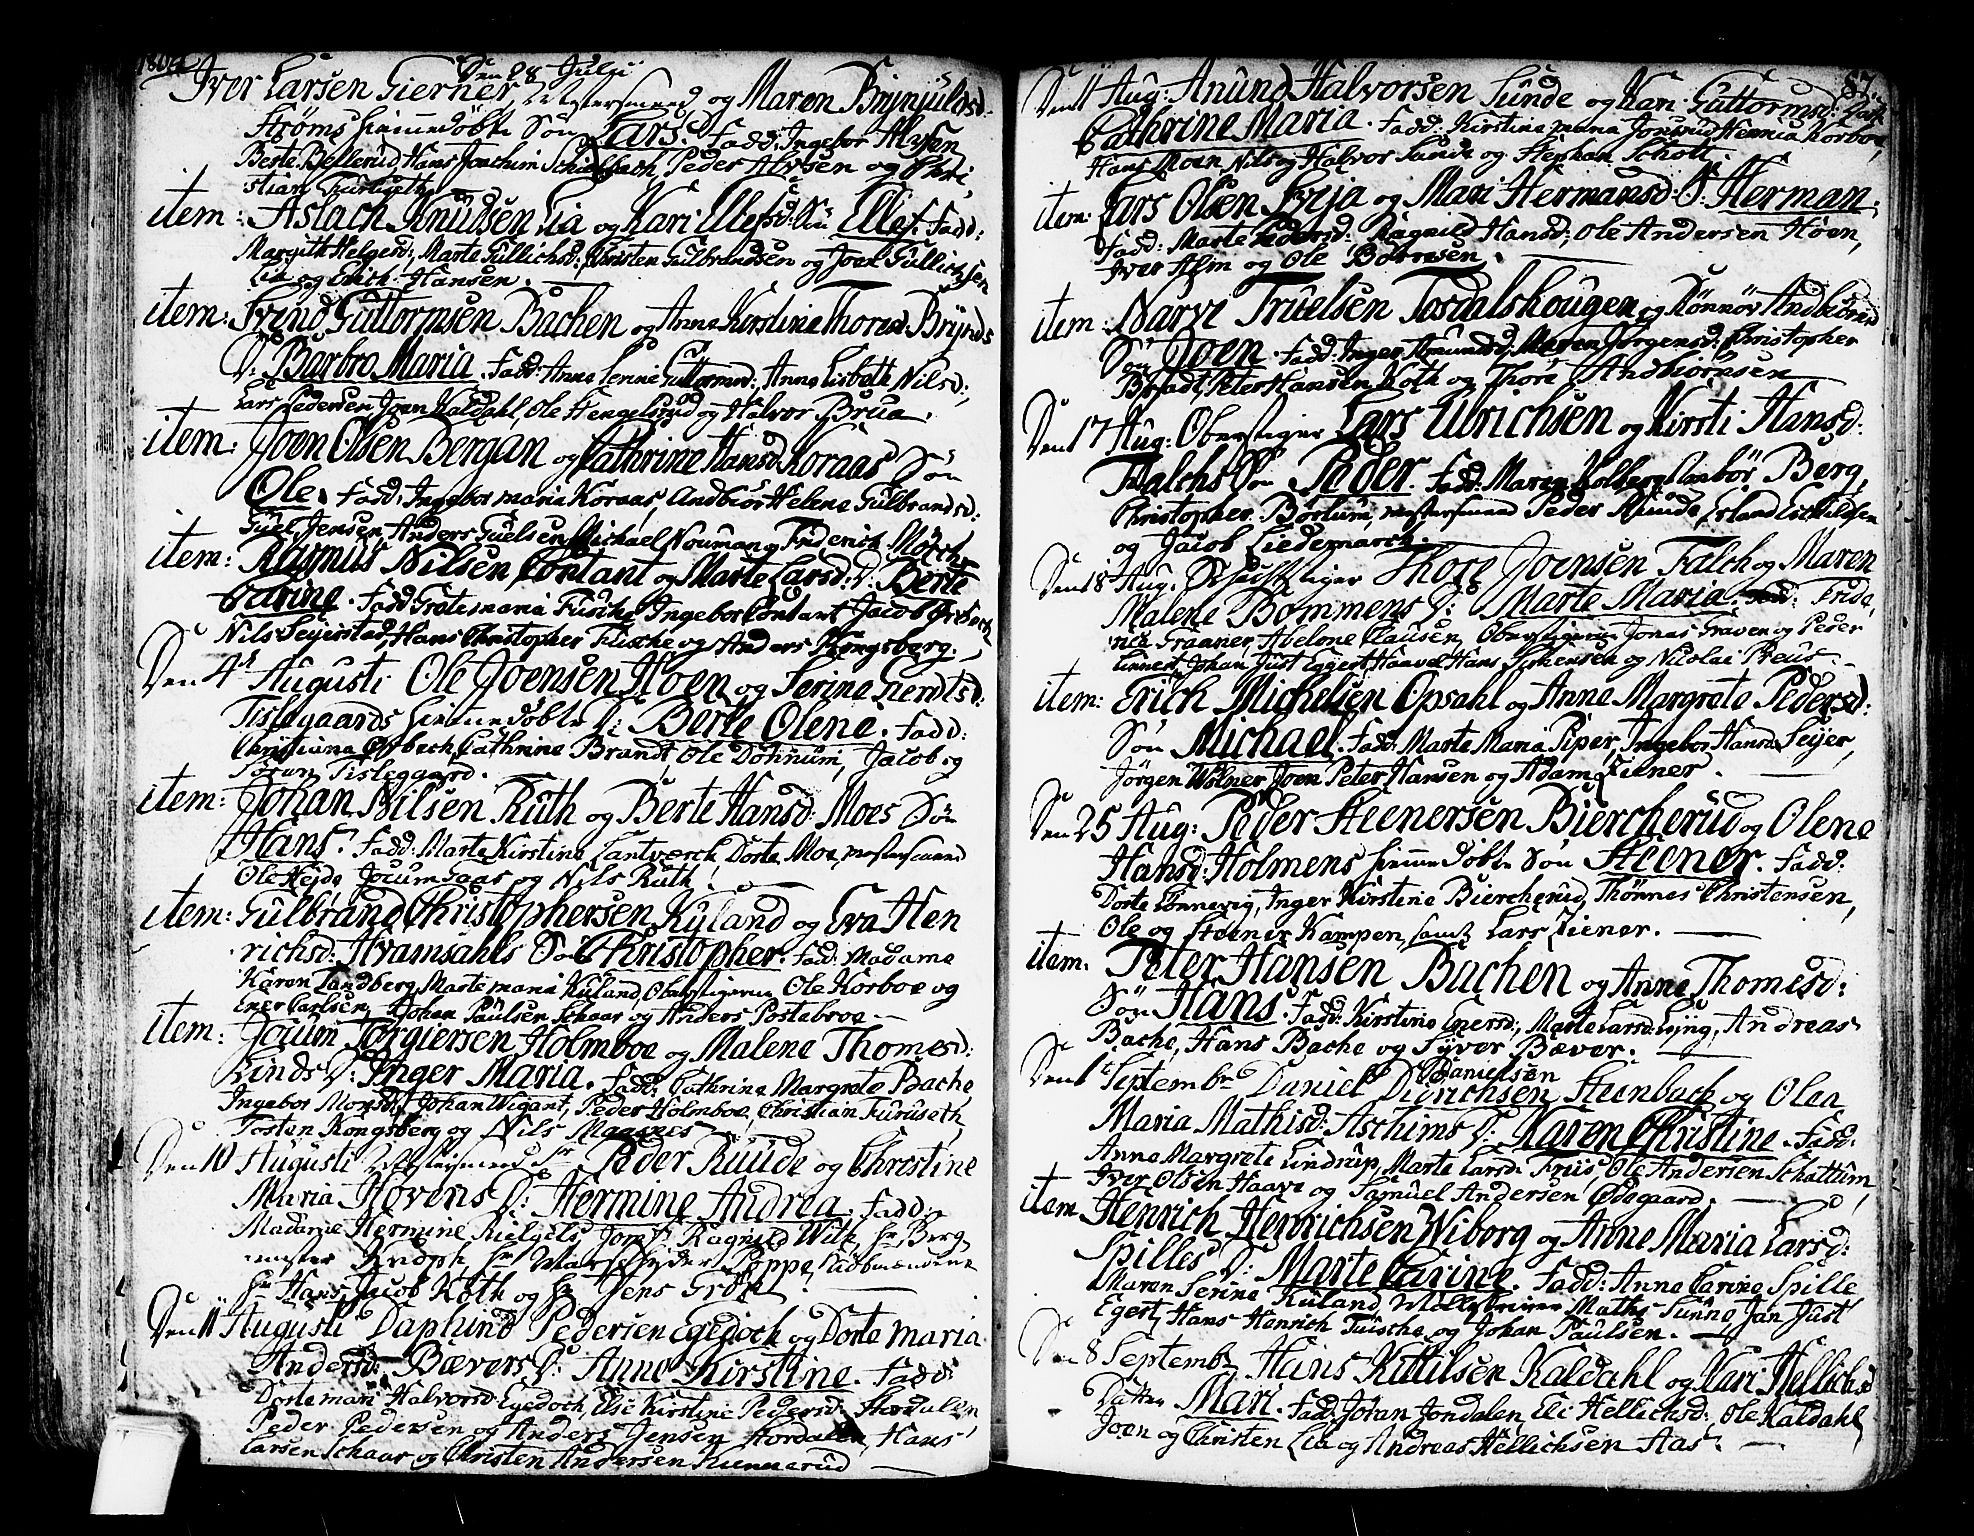 1804
Den 28 Julij
Iver Larsen Gierner, Mestersmeed og Maren Brÿnjulds
Ströms hiemmedöbte Sön Lars. Fadd: Ingebor Alfsen
Berte Bellerud, Hans Joachim Peder Alfsen og Chri
stian Furuseth
item: Aslach Knudsen Lia og Kari Ellefsd: Sön Ellef. Fadd:
Margith Helgesd:, Marte Gullichsd:, Christen Gulbrandsen og Joen Gullichsen
Lia og Erich Hansen.
item: Svend Guttormsen Bachen og Anne Kirstine Thoresd: Brÿnds
D: Barbro Maria. Fadd: Anne Lenne Guttormsd:, Anne Lisbeth Nilsd:,
Lars Pedersen, Joen Kaldahl, Ole Hengelsrud og Halvor Brua.
item: Joen Olsen Bergan og Cathrine Hansd: Koraas Sön
Ole. Fadd: Ingebor maria Koraas, Andbiör Helene Gulbrandsd:
Guel Jensen, Anders Guelsen, Michael Nouman og Friderich Mörch
item: Ragnus Nilsen Contant og Marte Larsd: D: Berte
Carine. Fadd: Grete maria Fuschs, Ingebor Contant, Jacob
Nils Seyerstad, Hans Christopher Fusche og Anders Kongsberg.
Den 4de Augusti Ole Joensen Hoen og Serine Gerdtsd:
Tislegaards hiemmedöbte D: Berte Olene. Fadd:
Christiana Cathrine Brandt, Ole Dohnum, Jacob og
Sören Tislegaard.
item: Johan Nilsen Ruth og Berte Hansd: Moes Sön
Hans. Fadd: Marte Kirstine Lantværck, Dorte Moe, mestersmeed
Ole Hejde, Jocum Saas og Nils Ruth.
item: Gulbrand Christophersen Kÿland og Eva Hen
richsd: Hvamsahls Sön Christopher. Fadd: Madame
Karen Landberg, Marte maria Kuland, Oberstigerne Ole Korboe og
Ener Carlsen, Johan Paulsen Schaar og Anders Postabroe
item: Jocum Torgiersen Holmboe og Malene Thomesd:
Linds D: Inger Maria. Fadd: Cathrine Margrete Bache
Ingebor Monsd: Johan Wigant, Peder Holmboe, Christian Furuseth,
Tosten Kongsberg og Nils Maasnes
Den 10 Augusti Mestersmed Hr Peder Ruude og Christine
Maria Hovens D: Hermine Andrea. Fadd:
Madame Hermine Kielgels, Jomf: Ragnild Wilk, Hr. Berg
mester Hr Marscheider Poppe, Kiöbmændene
Hr Hans Jacob Koth og Hr Jens Gröth
Den 11 Augusti Daphund Pedersen Egedoch og Dorte maria
Andersd: Bævers D: Anne Kirstine. Fadd:
Dorte mari Halvorsd: Egedoch, Else Kirstine Pedersd: Hordalen
Peder Pedersen og Anders Jensen Hordalen, Hans
Larsen Schaar og Christen Andersen Kunnerud
87.
Den 11 Aug: Anund Halvorsen Sunde og Kari Guttormsd: Datt
Cathrine Maria. Fadd: Kirstine maria Jonsrud, Hennia Korboe,
Hans Moen, Nils og Halvor Sunde og Stephan Schott
item: Lars Olsen Svija og Mari Hermansd: S: Herman.
Fadd: Marte Pedersd: Ragnild Hansd:, Ole Andersen Hoen,
Iver Alm og Ole Borresen.
item: Narvi Truelsen Tosdalshougen og Rönnöv Andbiörnsd
Sön Joen. Fadd: Inger Amundsd, Maren Jörgensd: Christopher
Peter Hansen Koth og Thore Andbiörnsen
Den 17 Aug: Oberstiger Lars Ulrichsen og Kirsti Hansd:
Falchs Sön Peder. Fadd: Maren Kolberg, Berg,
Christopher Börlum, mestersmeed Peder Ruude, Erland Eschildsen
og Jacob Liedemarck.
Den 18 Aug. Schachtstiger Thore Joensen Falch og Maren
Malene Bommens D: Marte Maria. Fadd: Fride,
rica Graaner, Abelone Clausen, Oberstigerne Jonas Graven og Peder
Linnert, Johan Just Eggert, Haavel Hans Simensen og Nicolai Preus.
item: Erich Michelsen Opsahl og Anne Margrete Pedersd:
Sön Michael. Fadd: Marte Maria Piper, Ingebor Hansd: Seijer,
Jörgen Wölner, Joen Peter Hansen og Adam Ziener.
Den 25 Aug: Peder Steenersen Biercherud og Olene
Hansd: Holmens hiemmedöbte Sön Steener. Fadd:
Dorte Lönnevig, Inger Kirstine Biercherud, Thönnes Christensen,
Ole og Steener Kampen, samt Lars Ziener.
item: Peter Hansen Bachen og Anne Thomesd:
Sön Hans. Fadd: Kirstine Enersd:, Marte Larsd: Andreas
Bache, Hans Bache og Syver Bæver.
Den 1te Septembr Daniel Danielsen Didrichsen Steenbach og Olea
Maria Mathisd: Aschims D: Karen Christine. Fadd:
Anne Margrete Lindrup, Marte Larsd: Friis, Ole Andersen Schattum,
Iver Olsen Haave og Samuel Andersen Ödegaard.
item Henrich Henrichsen Wiborg og Anne Maria Larsd:
Spilles D: Marte Carine. Fadd: Anne Carine Spille
Maren Serine Kuland, Mathis Sunne, Jan Just
Egert, Hans Henrich Tusche, og Johan Paulsen.
Den 8 Septembr Hans Kittilsen Kaldahl og Kari Hellichsd
Datter Mari. Fadd: Johan Jondalen, Eli Hellichsd:, Ole Kaldahl,
Joen og Christen Lia og Andreas Hellichsen Aas.